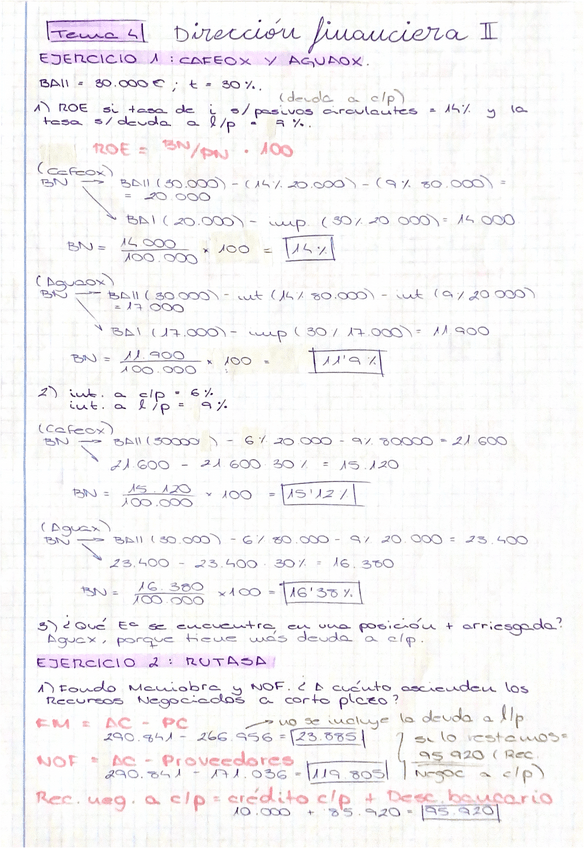 Tema 4 Dirección financiera II
EJERCICIO 1: CAFEOX Y AGUAOX.
BAII = 30.000 €; t = 30%.
(deuda a c/p)
1) ROE si tasa de i s/pasivos circulantes = 14% y la
tasa s/deuda a l/p = 9%.
ROE = BN/PN · 100
(Cafeox)
BN → BAII (30.000) - (14% 20.000) - (9% 80.000) =
= 20.000
BAI (20.000) - imp. (30% 20 000) = 14.000
BN = 14 000 / 100.000 × 100 = 14%
(Aguaox)
BN → BAII (30.000) - int (14% 80.000) - int (9% 20 000)
= 17 000
BAI (17.000) - imp (30% 17.000) = 11 900
BN = 11.900 / 100.000 × 100 = 11'9%
2) int. a c/p = 6%
int. a l/p = 9%
(Cafeox)
BN → BAII (30000) - 6% 20 000 - 9% 80000 = 21.600
21.600 - 21 600 30% = 15.120
BN = 15.120 / 100.000 × 100 = 15'12%
(Aguax)
BN → BAII (30.000) - 6% 80.000 - 9% 20 000 = 23.400
23.400 - 23.400 · 30% = 16.380
BN = 16.380 / 100.000 × 100 = 16'38%
3) ¿Qué Eª se encuentra en una posición + arriesgada?
Aguax, porque tiene más deuda a c/p.
EJERCICIO 2: RUTASA
1) Fondo Maniobra y NOF. ¿A cuánto ascienden los
Recursos Negociados a corto plazo?
FM = AC - PC → no se incluye la deuda a l/p
290.841 - 266.956 = 23.885
si lo restamos =
95 920 (Rec.
Negoc a c/p)
NOF = AC - Proveedores
290.841 - 171.036 = 119.805
Rec. neg. a c/p = crédito c/p + Desc. bancario
10.000 + 85.920 = 95.920